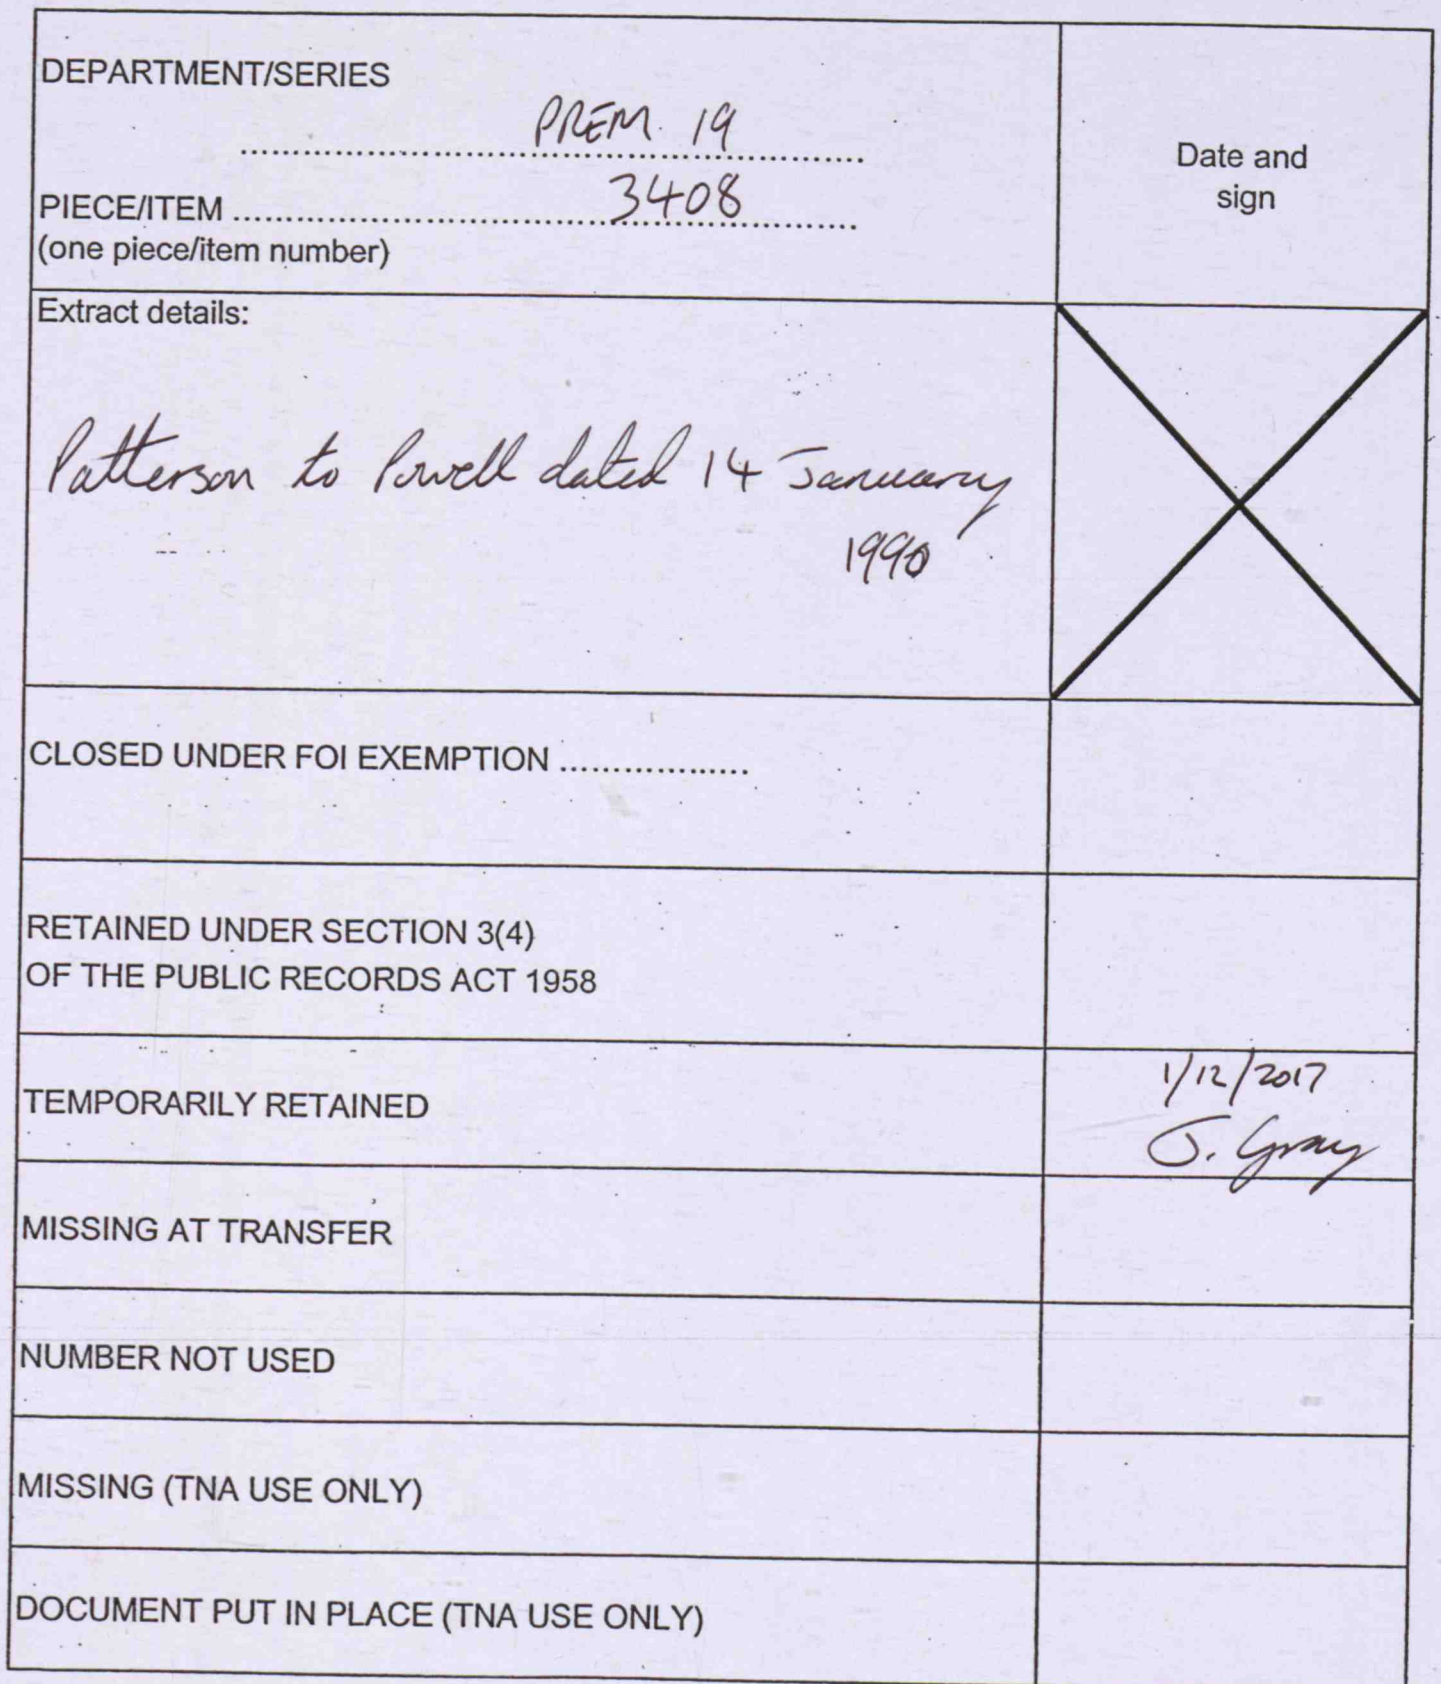 DEPARTMENT/SERIES
PREM 19
Date and
sign
PIECE/ITEM 3408
(one piece/item number)
Extract details:
Patterson to Powell dated 14 January
1990
CLOSED UNDER FOI EXEMPTION ..................
RETAINED UNDER SECTION 3(4)
OF THE PUBLIC RECORDS ACT 1958
TEMPORARILY RETAINED
1/12/2017
J. Gray
MISSING AT TRANSFER
NUMBER NOT USED
MISSING (TNA USE ONLY)
DOCUMENT PUT IN PLACE (TNA USE ONLY)